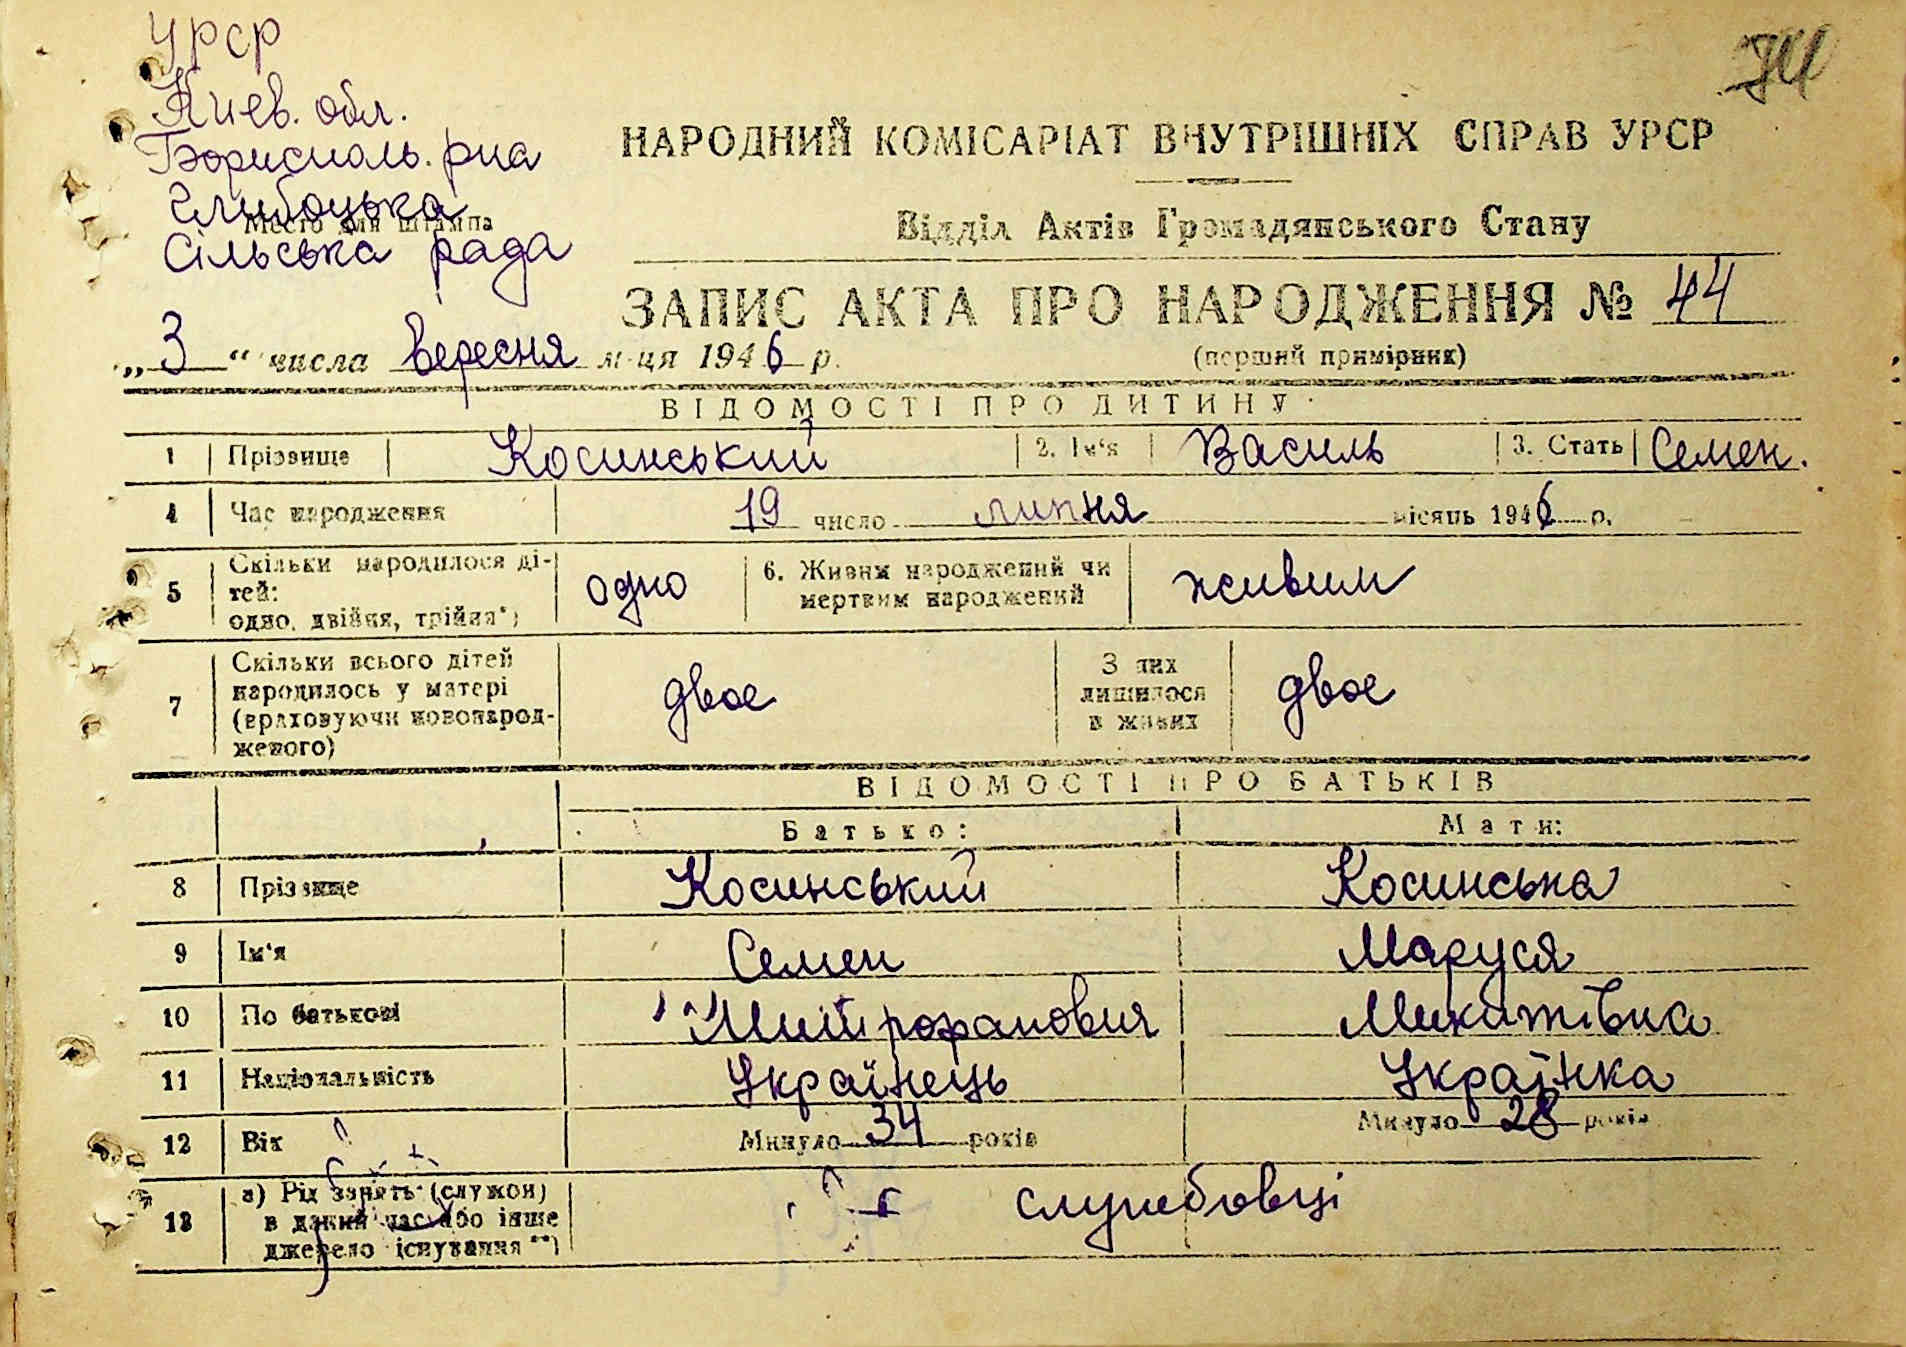 УРСР
Киев. обл.
Борисполь. рна
Глибоцька
Место для штампа
сільська рада
НАРОДНИЙ КОМІСАРІАТ ВНУТРІШНІХ СПРАВ УРСР
Відділ Актів Громадянського Стану
ЗАПИС АКТА ПРО НАРОДЖЕННЯ № 44
„ 3 “ числа вересня м-ця 1946 р.
(перший примірник)
ВІДОМОСТІ ПРО ДИТИНУ
1 Прізвище Косинський 2. Ім‘я Василь 3. Стать Семен.
4 Час народження 19 число липня місяць 1946 р.
5 Скільки народилося дітей: одно, двійня, трійня*) одно 6. Живим народжений чи мертвим народжений живим
7 Скільки всього дітей народилось у матері (враховуючи новонародженого) двое З них лишилося в живих двое
ВІДОМОСТІ ПРО БАТЬКІВ
Батько: Мати:
8 Прізвище Косинський Косинська
9 Ім‘я Семен Маруся
10 По батькові Митрофанович Микитівна
11 Національність Українець Українка
12 Вік Минуло 34 років Минуло 28 років
13 а) Рід занять (служби) в даний час або інше джерело існування**) службовці